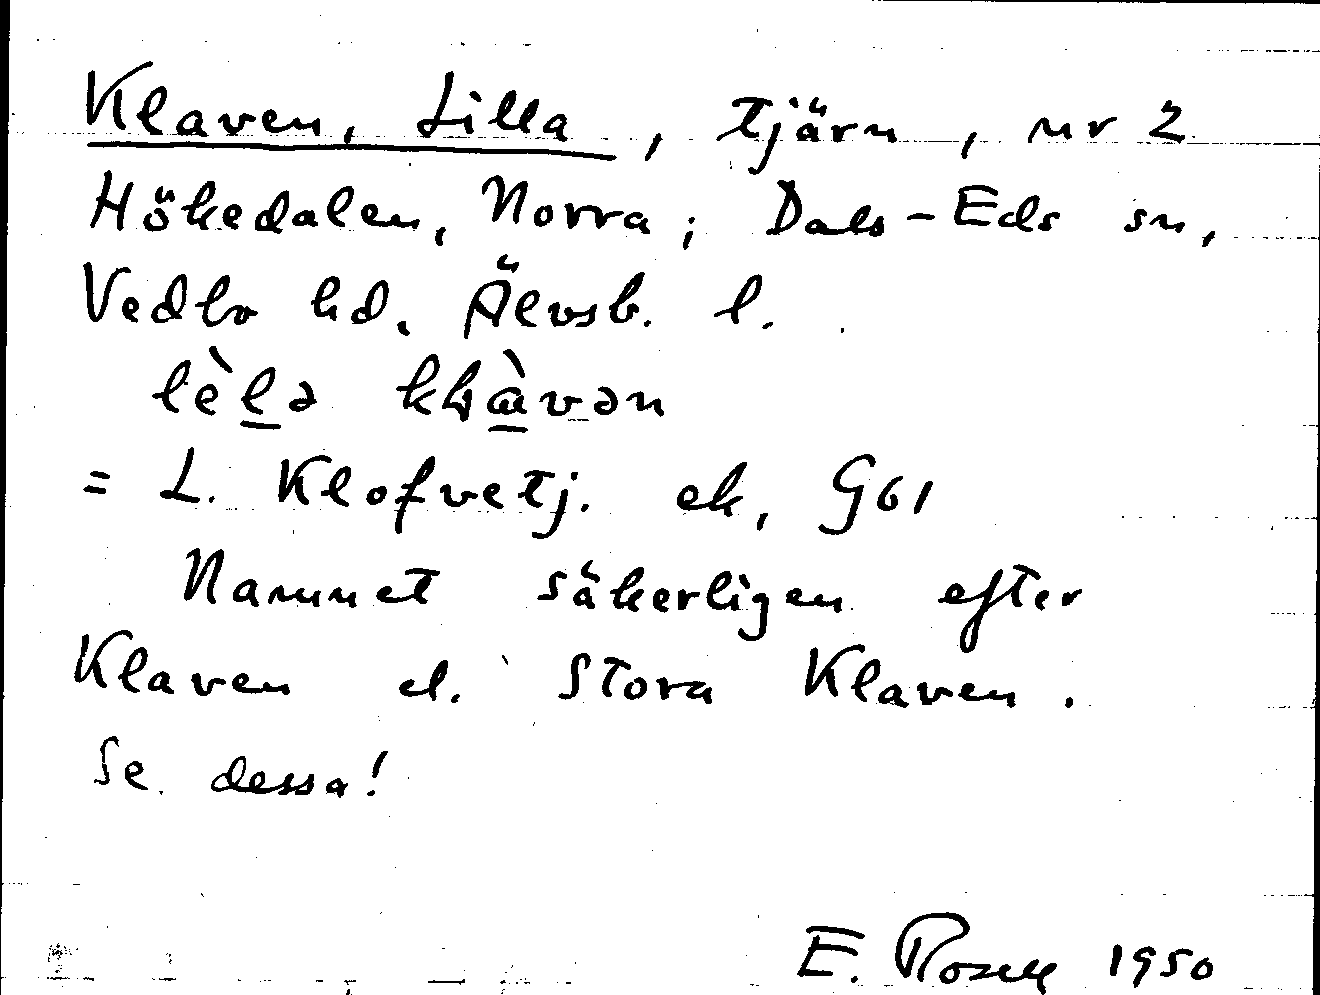 Klaven, Lilla, tjärn, nr 2
Hökedalen, Norra; Dals-Eds sn,
Vedbo hd. Älvsb. l.
lèlə
= L. Klofvetj. ek, G61
Namnet säkerligen efter
Klaven el. Stora Klaven.
Se dessa!
E. Rosell 1950